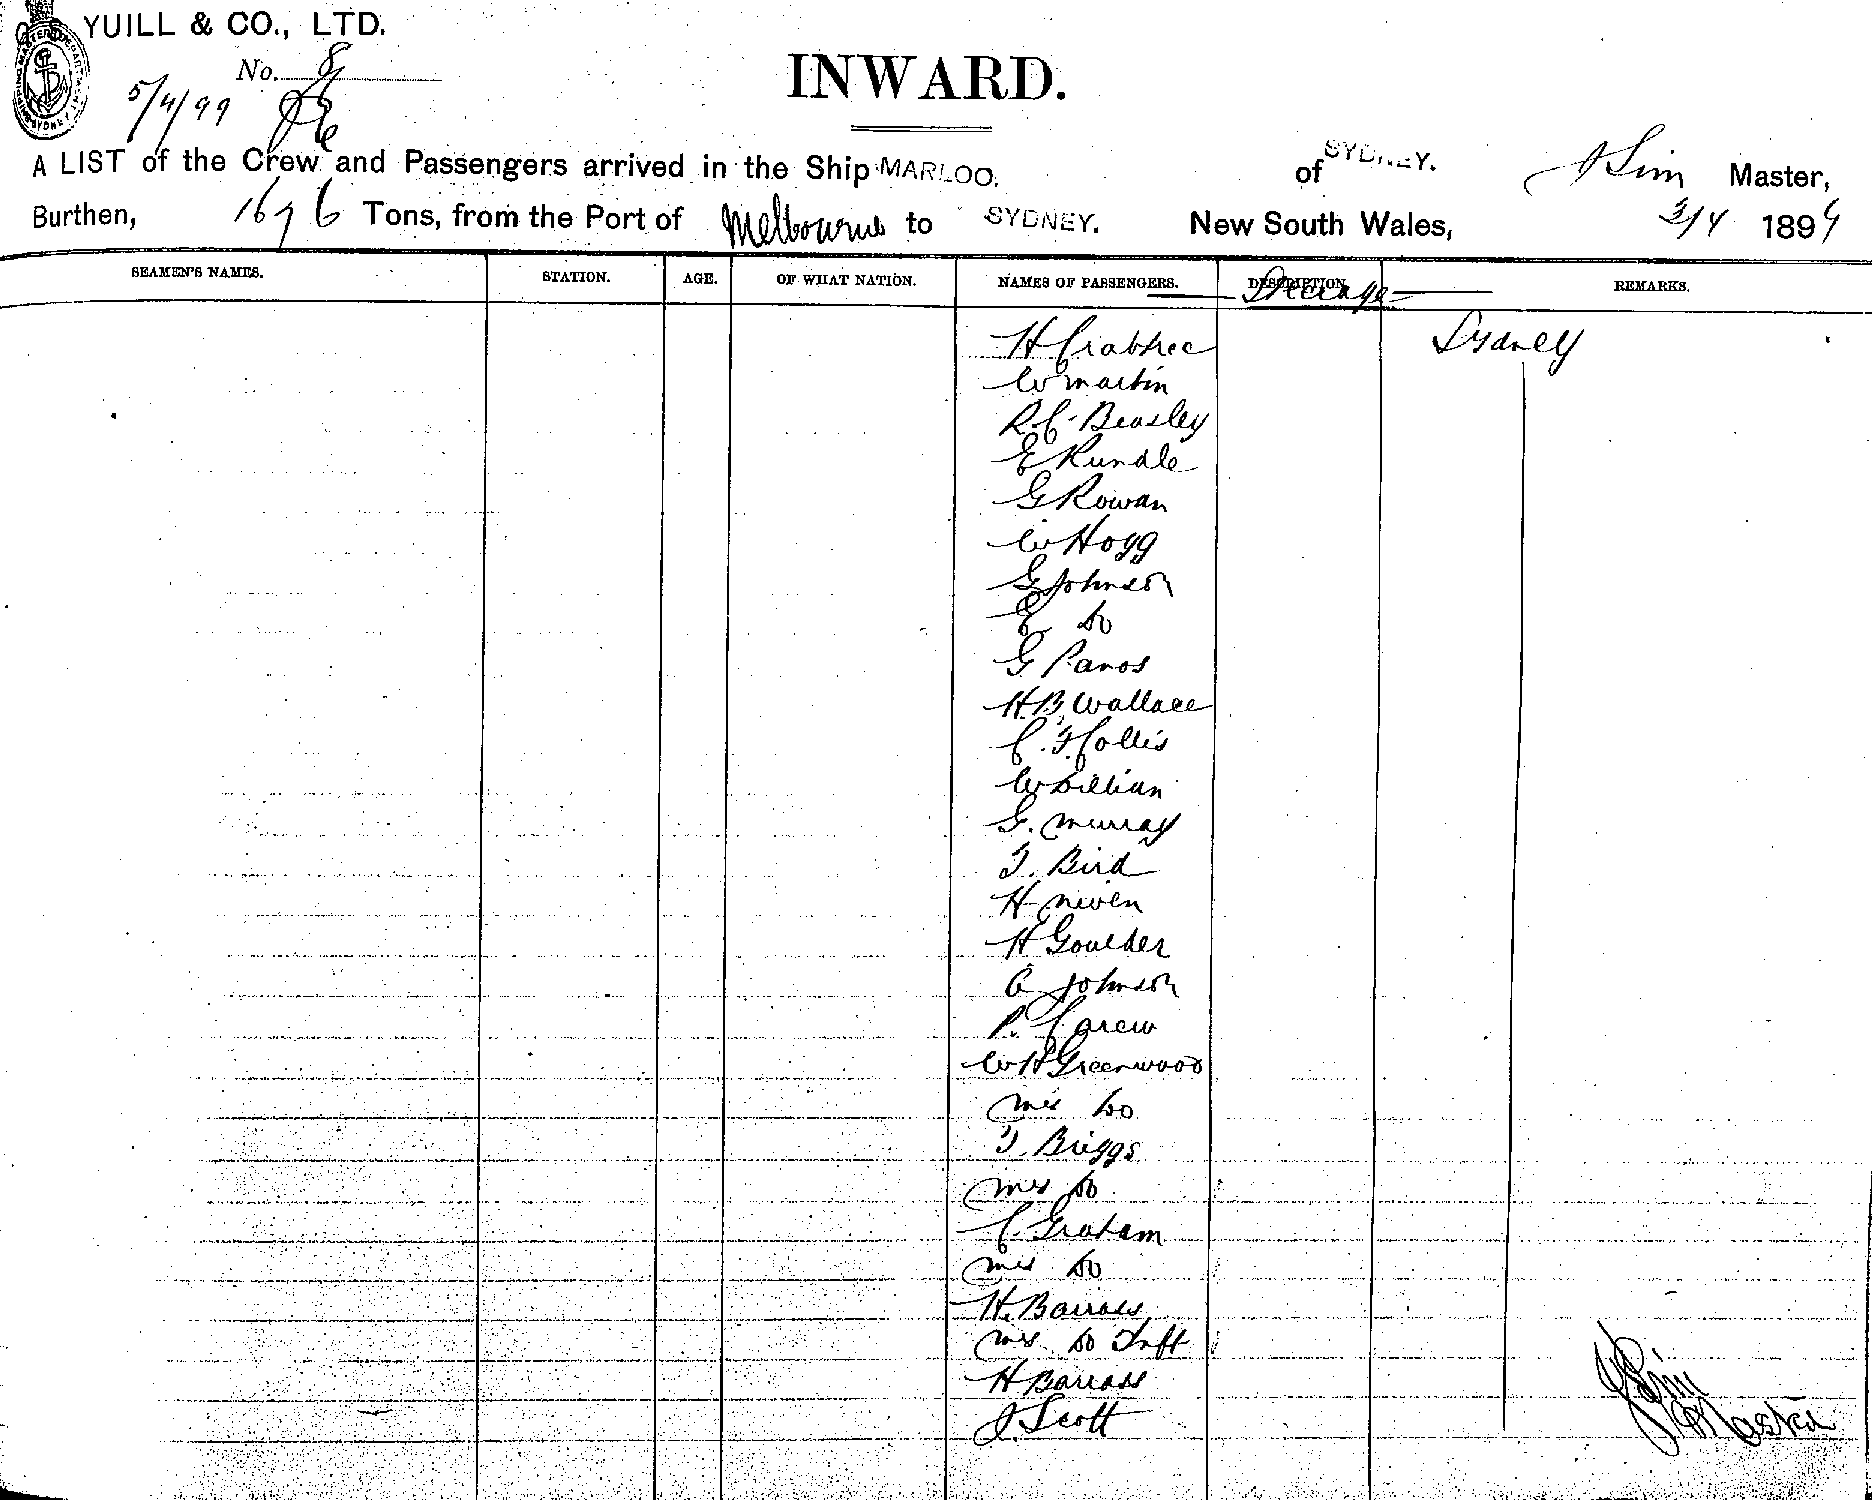 YUILL & CO., LTD.
No. 8
5/4/99
INWARD.
A LIST of the Crew and Passengers arrived in the Ship MARLOO. of SYDNEY. J Sim Master,
Burthen, 1676 Tons, from the Port of Melbourne to SYDNEY. New South Wales, 3/4 1899
SEAMEN'S NAMES. STATION. AGE. OF WHAT NATION. NAMES OF PASSENGERS. DESCRIPTION. REMARKS.
Steerage
H Crabtree Sydney
W Martin
R. C. Beasley
E Rundle
G Rowan
W Hogg
G Johnson
E do
G Panos
H. B. Wallace
C. F. Collis
W Dillian
G. Murray
T. Bird
H Niven
H Goulder
C Johnson
P. Carew
W H Greenwood
Mrs do
T. Briggs
Mrs do
C. Graham
Mrs do
H. Barrass
Mrs do Inft
H Barrass
J. Scott
J Sim
Master